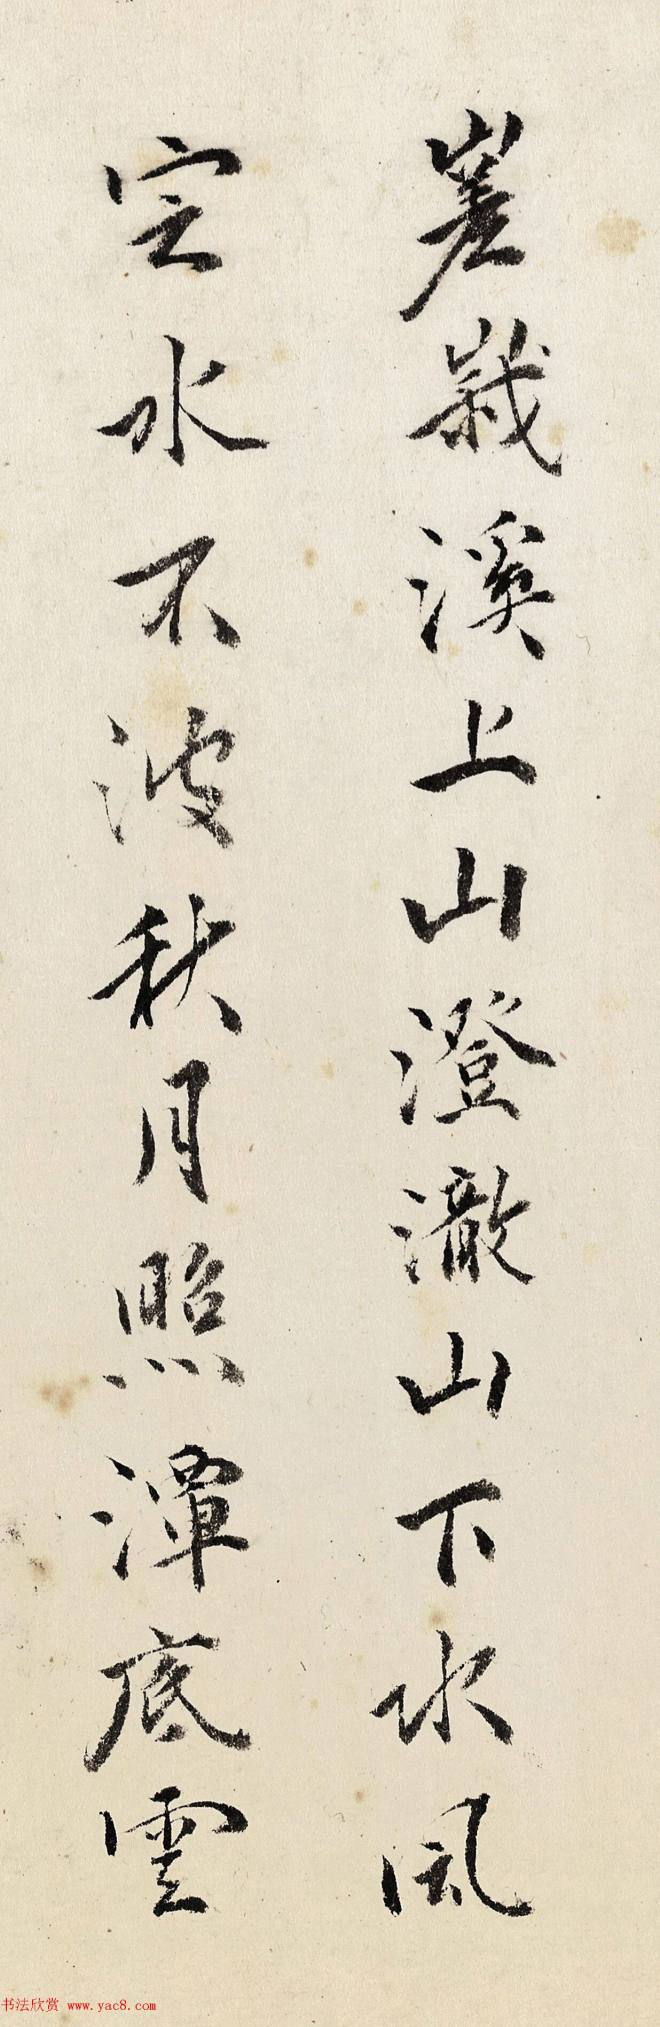 嵳峩溪上山澄澈山下水風
定水不波秋月照潭底雲
书法欣赏 www.yac8.com